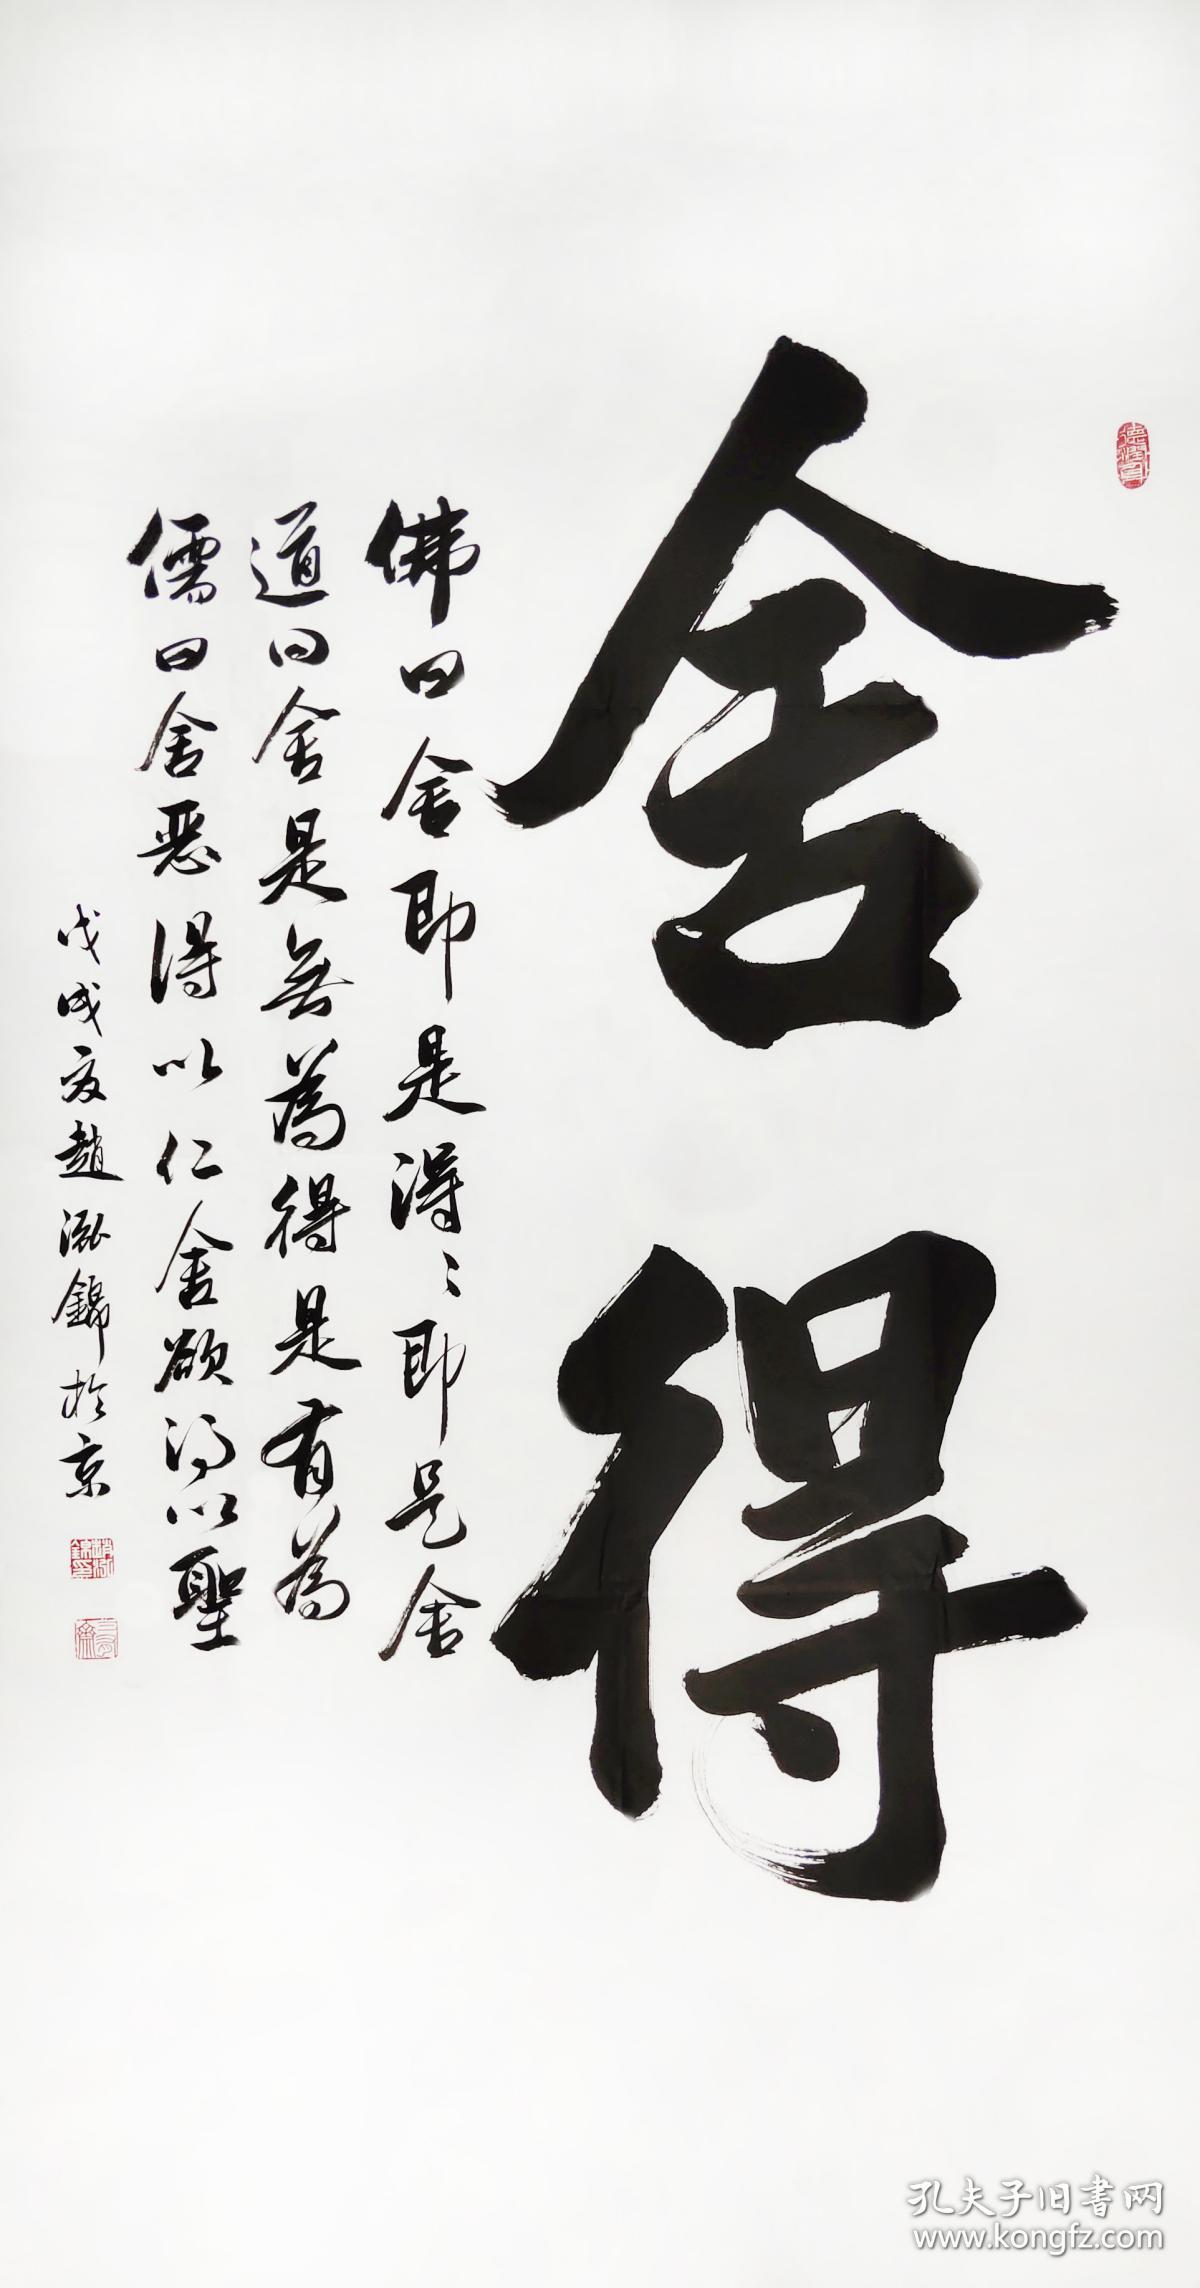 舍得
佛曰舍即是得〻即是舍
道曰舍是無為得是有為
儒曰舍惡得以仁舍欲得以聖
戊戌夏趙泓錦於京
德潤身
孔夫子旧书网
www.kongfz.com